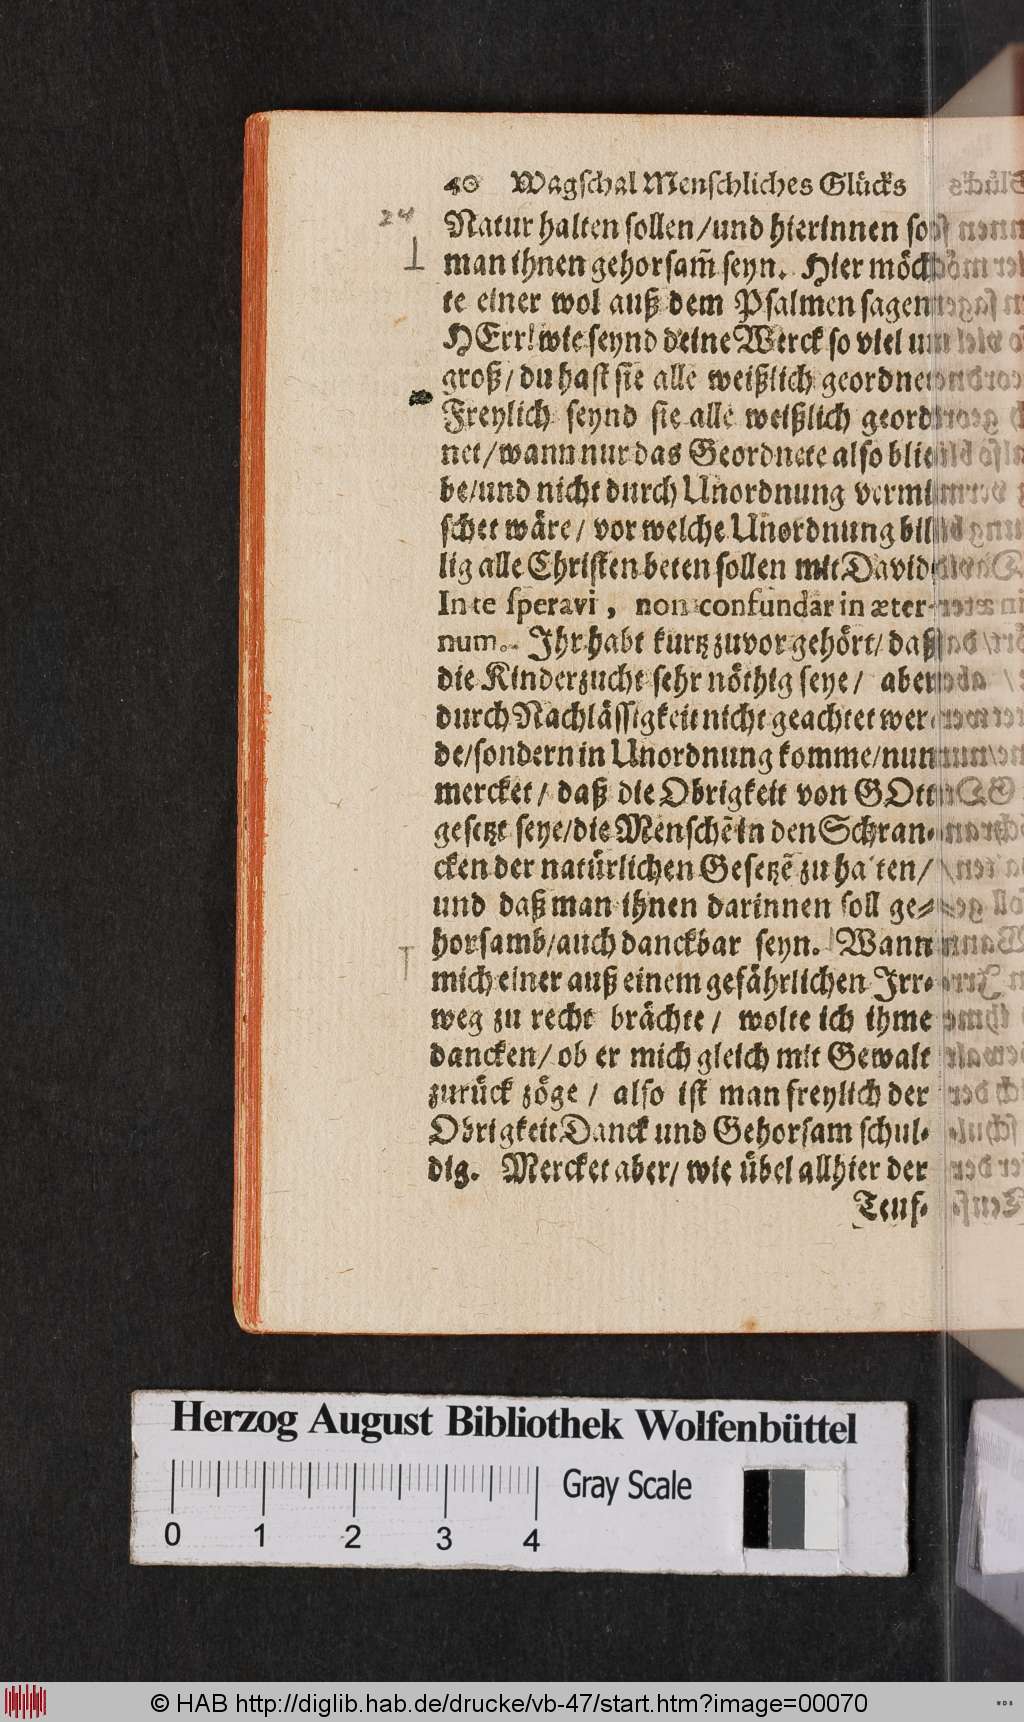 40 Wagschal Menschliches Glücks
24
Natur halten sollen/und hierinnen so
man ihnen gehorsam̃ seyn. Hier möch
te einer wol auß dem Psalmen sagen
HErr! wie seynd deine Werck so viel un
groß/ du hast sie alle weißlich geordnet
Freylich seynd sie alle weißlich geord
net/wann nur das Geordnete also blie
be/und nicht durch Unordnung vermi
schet wäre/ vor welche Unordnung bil
lig alle Christen beten sollen mit David
In te speravi, non confundar in æter-
num. Ihr habt kurtz zuvor gehört/ daß
die Kinderzucht sehr nöthig seye/ aber
durch Nachlässigkeit nicht geachtet wer
de/sondern in Unordnung komme/nun
mercket/ daß die Obrigkeit von GOtt
gesetzt seye/die Menschẽ in den Schran-
cken der natürlichen Gesetzẽ zu halten/
und daß man ihnen darinnen soll ge-
horsamb/auch danckbar seyn. Wann
mich einer auß einem gefährlichen Irr-
weg zu recht brächte/ wolte ich ihme
dancken/ ob er mich gleich mit Gewalt
zurück zöge/ also ist man freylich der
Obrigkeit Danck und Gehorsam schul-
dig. Mercket aber/ wie übel allhier der
Teuf-
Herzog August Bibliothek Wolfenbüttel
Gray Scale
0 1 2 3 4
© HAB http://diglib.hab.de/drucke/vb-47/start.htm?image=00070